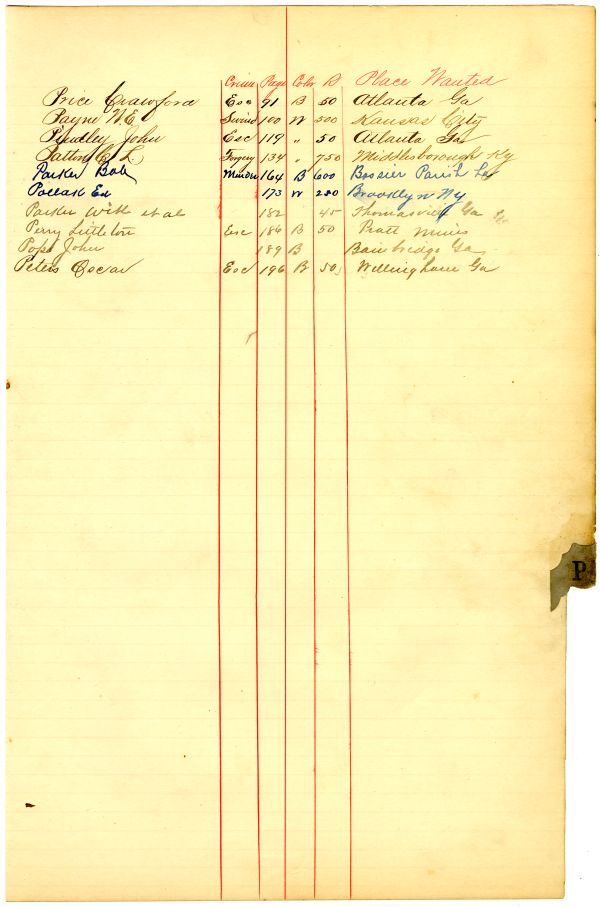 Crime Page Color $ Place Wanted
Price Crawford Esc 91 B 50 Atlanta Ga
Payne W.E. 100 W 500 Kansas City
Pendley John Esc 119 " 50 Atlanta Ga
Patton C L Forgery 134 " 750 Middlesborough Ky
Parker Bob Murder 164 B 600 Bossier Parish La
Pollak Ed 173 W 280 Brooklyn Ny
Parker Will et al 182 45 Thomasville Ga
Perry Littleton Esc 186 B 50 Pratt Mines
Pope John 189 B Bainbridge Ga
Peters Oscar Esc 196 B 50 Willingham Ga
P